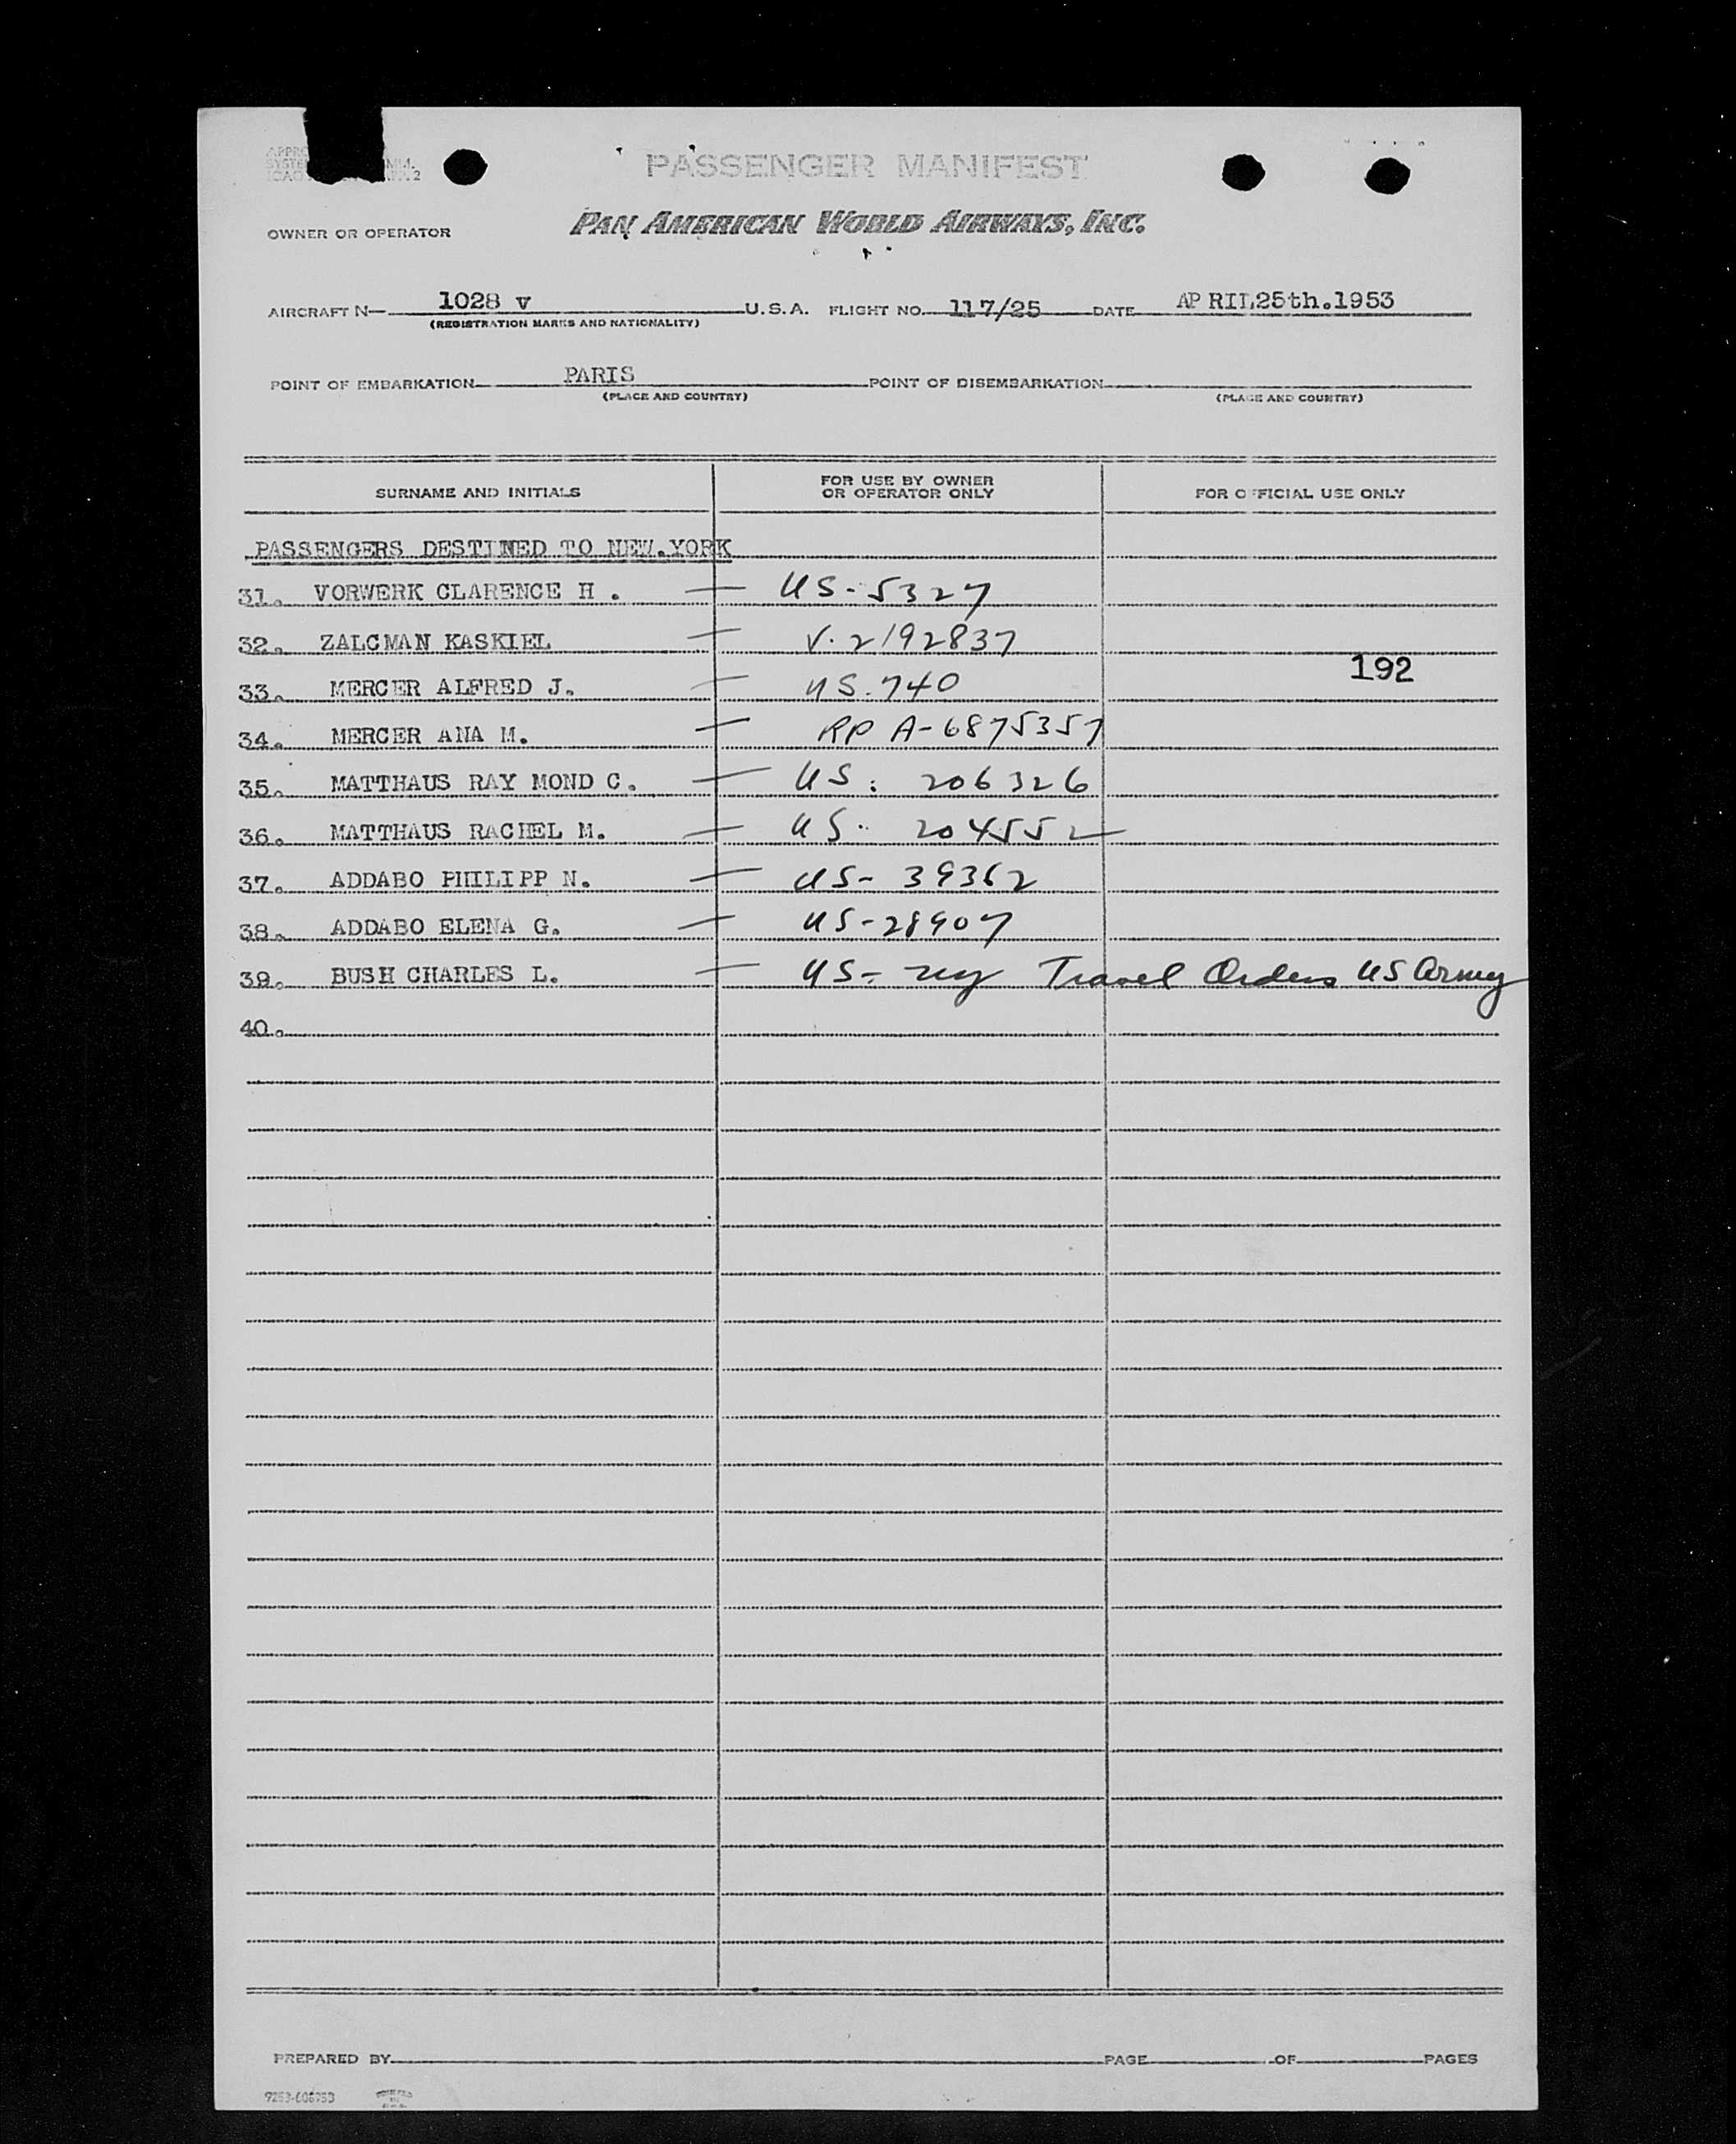 PASSENGER MANIFEST
OWNER OR OPERATOR PAN AMERICAN WORLD AIRWAYS, INC.
AIRCRAFT N— 1028 V U.S.A. FLIGHT NO. 117/25 DATE AP RIL25th.1953
(REGISTRATION MARKS AND NATIONALITY)
POINT OF EMBARKATION PARIS POINT OF DISEMBARKATION
(PLACE AND COUNTRY) (PLACE AND COUNTRY)
SURNAME AND INITIALS FOR USE BY OWNER OR OPERATOR ONLY FOR OFFICIAL USE ONLY
PASSENGERS DESTINED TO NEW.YORK
31. VORWERK CLARENCE H . — US-5327
32. ZALCMAN KASKIEL — V. 2192837
192
33. MERCER ALFRED J. — US. 740
34. MERCER ANA M. — RP A-6875357
35. MATTHAUS RAY MOND C. — US: 206326
36. MATTHAUS RACHEL M. — US. 204552
37. ADDABO PHILIPP N. — US- 39362
38. ADDABO ELENA G. — US-28907
39. BUSH CHARLES L. — US- Travel Orders US Army
40.
PREPARED BY PAGE OF PAGES